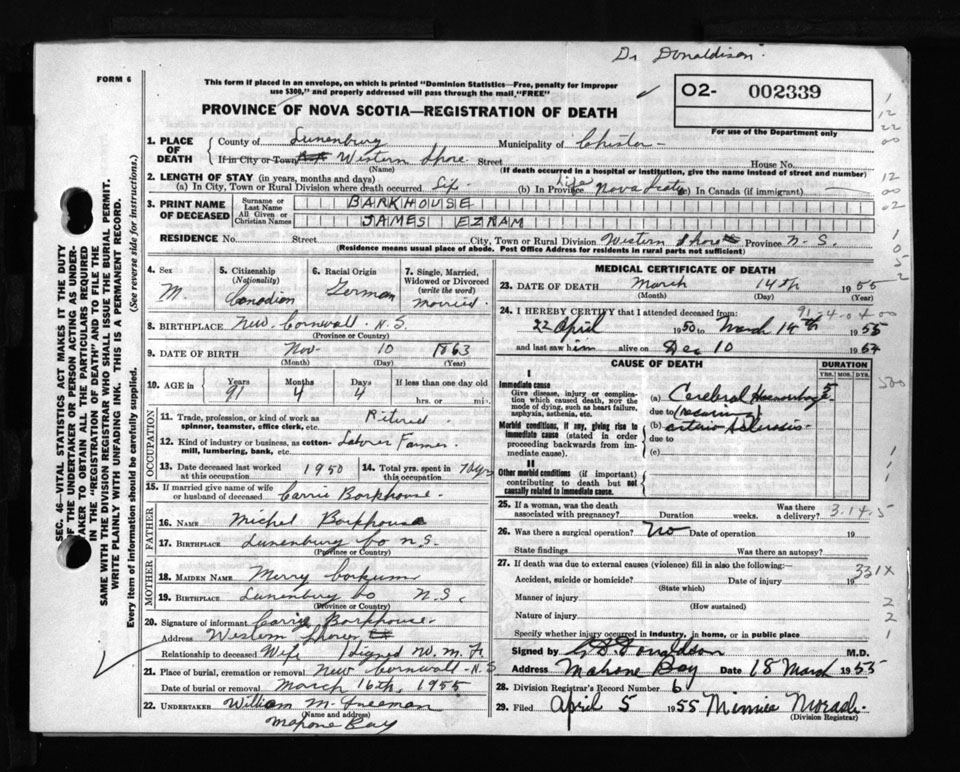 Dr Donaldison
FORM 6
This form if placed in an envelope, on which is printed "Dominion Statistics—Free, penalty for improper
use $300," and properly addressed will pass through the mail, "FREE"
PROVINCE OF NOVA SCOTIA—REGISTRATION OF DEATH
02- 002339
For use of the Department only
SEC. 46 VITAL STATISTICS ACT MAKES IT THE DUTY
OF THE UNDERTAKER OR PERSON ACTING AS UNDER-
TAKER TO OBTAIN ALL THE PARTICULARS REQUIRED
IN THE "REGISTRATION OF DEATH" AND TO FILE THE
SAME WITH THE DIVISION REGISTRAR WHO SHALL ISSUE THE BURIAL PERMIT.
WRITE PLAINLY WITH UNFADING INK. THIS IS A PERMANENT RECORD.
Every item of information should be carefully supplied. (See reverse side for instructions.)
1. PLACE OF DEATH County of Lunenburg Municipality of Chester
If in City or Town Western Shore Street House No.
(Name) (If death occurred in a hospital or institution, give the name instead of street and number)
2. LENGTH OF STAY (in years, months and days)
(a) In City, Town or Rural Division where death occurred Life (b) In Province life Nova Scotia In Canada (if immigrant)
3. PRINT NAME OF DECEASED Surname or Last Name BARKHOUSE
All Given or Christian Names JAMES EZRAM
RESIDENCE No. Street City, Town or Rural Division Western Shore Province N.S.
(Residence means usual place of abode. Post Office Address for residents in rural parts not sufficient)
4. Sex 5. Citizenship (Nationality) 6. Racial Origin 7. Single, Married, Widowed or Divorced (write the word)
M. Canadian German married
8. BIRTHPLACE New Cornwall N.S.
(Province or Country)
9. DATE OF BIRTH Nov- 10 1863
(Month) (Day) (Year)
10. AGE in Years 91 Months 4 Days 4 If less than one day old
hrs. or min.
OCCUPATION
11. Trade, profession, or kind of work as spinner, teamster, office clerk, etc. Retired
12. Kind of industry or business, as cotton-mill, lumbering, bank, etc. Laborer Farmer
13. Date deceased last worked at this occupation 1950 14. Total yrs. spent in this occupation
15. If married give name of wife or husband of deceased Carrie Barkhouse
FATHER
16. NAME Michel Barkhouse
17. BIRTHPLACE Lunenburg Co N.S.
(Province or Country)
MOTHER
18. MAIDEN NAME Merry Corkum
19. BIRTHPLACE Lunenburg Co N.S.
(Province or Country)
20. Signature of informant Carrie Barkhouse
Address Western Shore
Relationship to deceased Wife signed W. M. F.
21. Place of burial, cremation or removal New Cornwall N.S
Date of burial or removal March 16th, 1955
22. UNDERTAKER William M. Freeman
(Name and address)
Mahone Bay
MEDICAL CERTIFICATE OF DEATH
23. DATE OF DEATH March 14th 1955
(Month) (Day) (Year)
24. I HEREBY CERTIFY that I attended deceased from:
22 April 1950 to March 14th 1955
and last saw him alive on Dec 10 1954
CAUSE OF DEATH DURATION
YRS. MOS. DYS.
I
Immediate cause
Give disease, injury or complication which caused death, NOT the mode of dying, such as heart failure, asphyxia, asthenia, etc.
(a) Cerebral Haemorrhage 5
due to (recurring)
Morbid conditions, if any, giving rise to immediate cause (stated in order proceeding backwards from immediate cause).
(b) arterio sclerosis
due to
(c)
II
Other morbid conditions (if important) contributing to death but not causally related to immediate cause.
25. If a woman, was the death associated with pregnancy? Duration weeks. Was there a delivery? 3.14.5
26. Was there a surgical operation? No Date of operation 19
State findings Was there an autopsy?
27. If death was due to external causes (violence) fill in also the following:—
331X
Accident, suicide or homicide? Date of injury 19
(State which)
Manner of injury
(How sustained)
Nature of injury
Specify whether injury occurred in industry, in home, or in public place
Signed by Donaldson M.D.
Address Mahone Bay Date 18 March 1955
28. Division Registrar's Record Number 6
29. Filed April 5 1955 Minnie Morash
(Division Registrar)